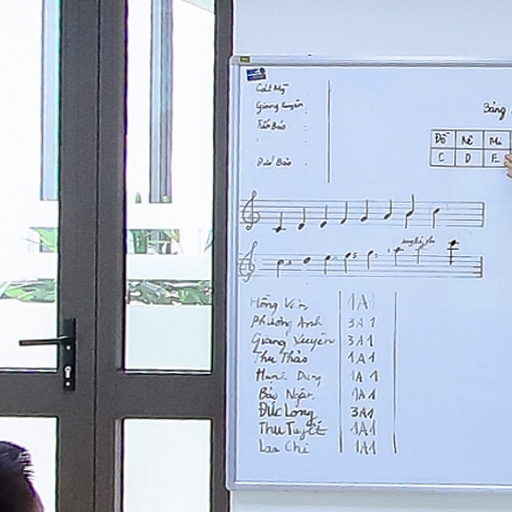 Cát Mỹ
Giang Xuyên
Tiến Bảo
Bảng
Đồ Rê Mi
C D E
Hồng Vân 1A1
Phương Anh 3A1
Giang Xuyên 3A1
Thu Thảo 1A1
Hạnh Dung 1A1
Bảo Ngân 1A1
Đức Long 3A1
Thu Tuyết 1A1
Lan Chi 1A1